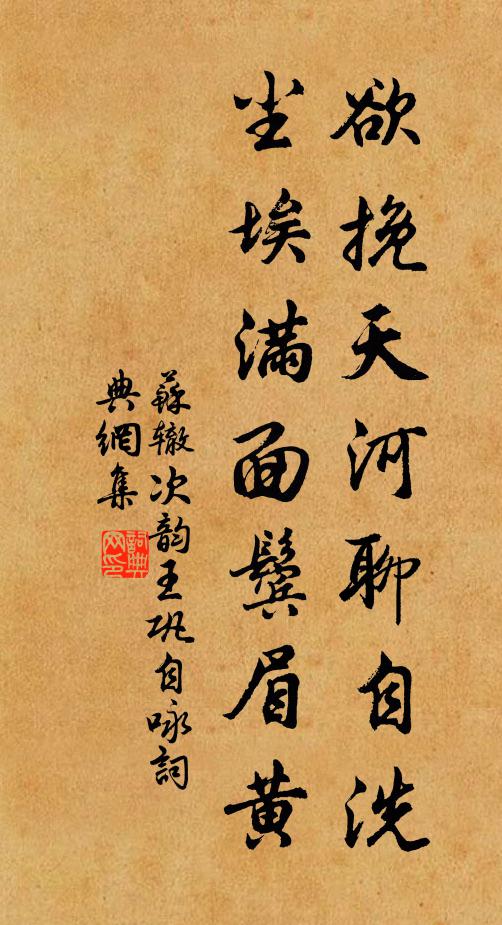 欲挽天河聊自洗
尘埃满面鬓眉黄
蘇辙次韵王巩自咏詞
典網集
詞典网印